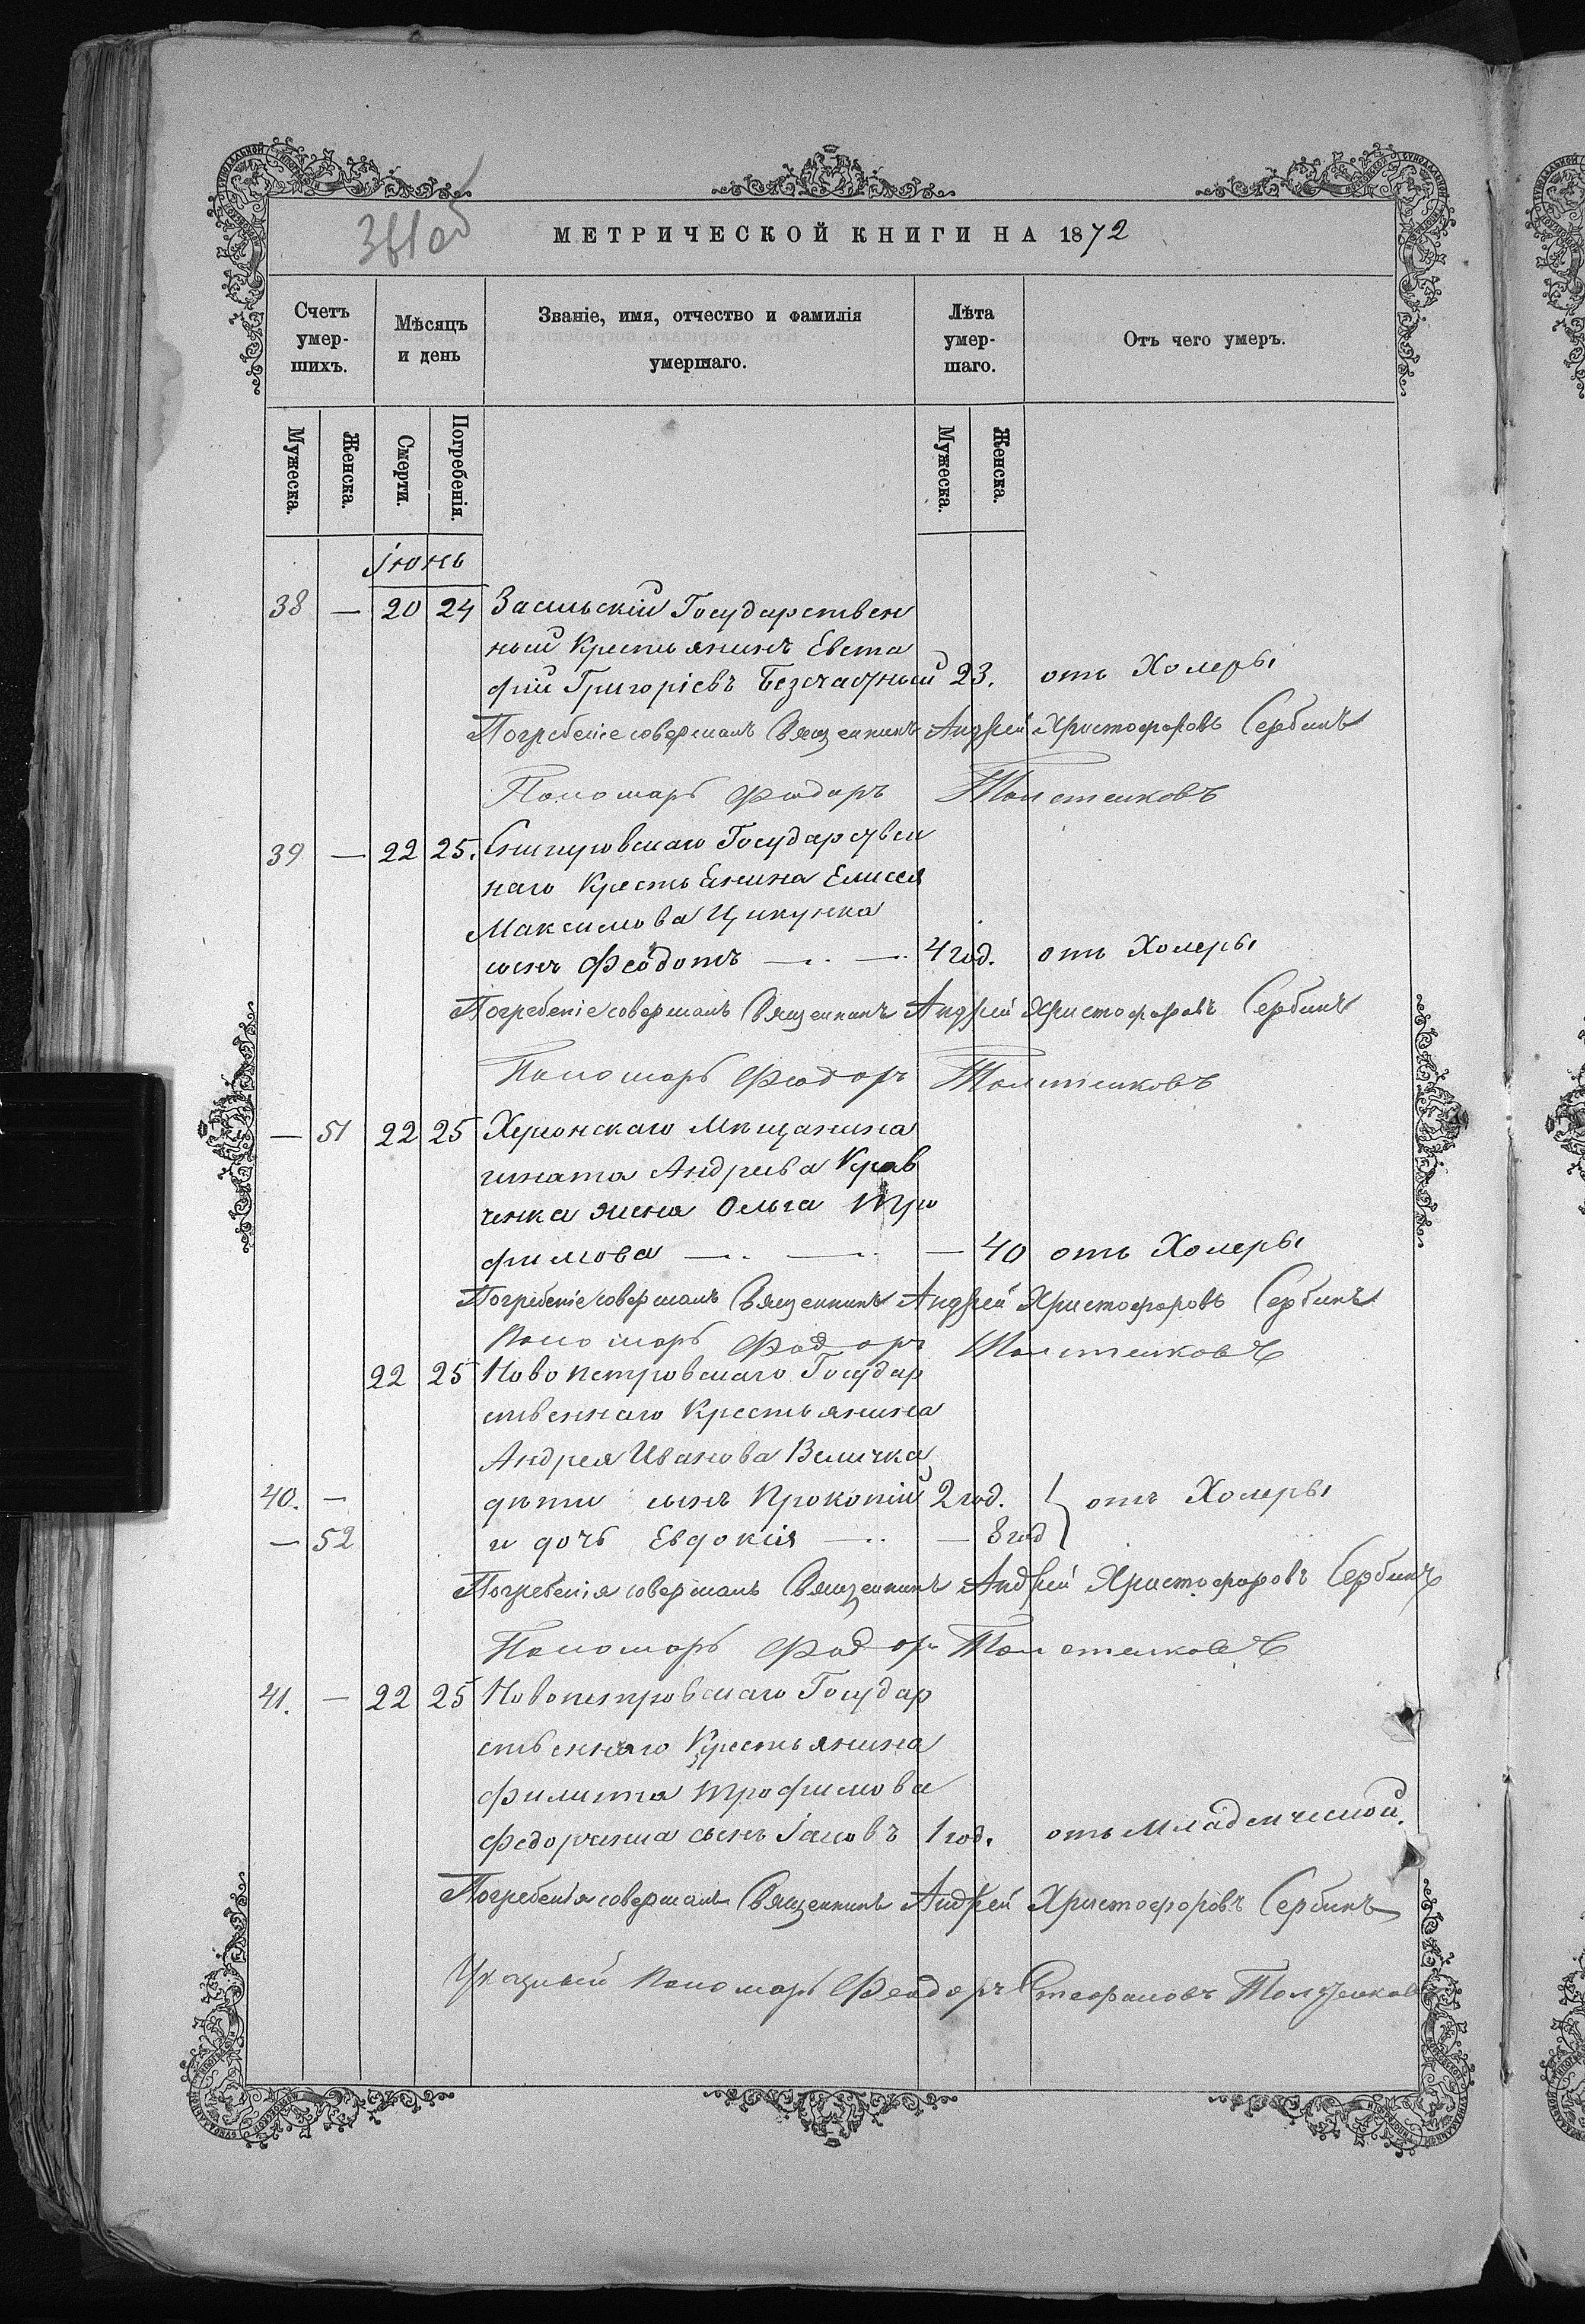 МЕТРИЧЕСКОЙ КНИГИ НА 1872
Счетъ умер-шихъ.
Мѣсяцъ и день
Званіе, имя, отчество и фамилія умершаго.
Лѣта умер-шаго.
Отъ чего умеръ.
Мужеска. Женска. Смерти. Погребенія. Мужеска. Женска.
Іюнь
38 — 20 24 Засельскій Государствен
ный Крестьянинъ Евста
фій Григоріевъ Безсчастный 23. отъ Холеры
Погребеніе совершалъ Священникъ Андрей Христофоровъ Сербинъ
Пономарь Феодоръ Толстенковъ
39 — 22 25. Государствен
наго Крестьянина Елисея
Максимова Цикунка
сынъ Феодотъ — .. — .. 4 год. отъ Холеры
Погребеніе совершалъ Священникъ Андрей Христофоровъ Сербинъ
Пономарь Феодоръ Толстенковъ
— 51 22 25 Херсонскаго Мѣщанина
Игната Андреева Крав
ченка жена Ольга Тро
фимова — .. — .. — 40 отъ Холеры
Погребеніе совершалъ Священникъ Андрей Христофоровъ Сербинъ
Пономарь Феодоръ Толстенковъ
22 25 Новопетровскаго Государ
ственнаго Крестьянина
Андрея Иванова Величка
40. — дѣти сынъ Прокопій 2 год. } отъ Холеры
— 52 и дочь Евдокія — .. — 8 год
Погребенія совершалъ Священникъ Андрей Христофоровъ Сербинъ
Пономарь Феодоръ Толстенковъ
41. — 22 25 Новопетровскаго Государ
ственнаго Крестьянина
Филиппа Трофимова
Федорченка сынъ Іаковъ 1 год. отъ Младенческой.
Погребенія совершалъ Священникъ Андрей Христофоровъ Сербинъ
Указный Пономарь Феодоръ Стефановъ Толстенковъ